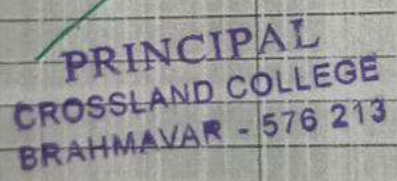 PRINCIPAL
CROSSLAND COLLEGE
BRAHMAVAR - 576 213